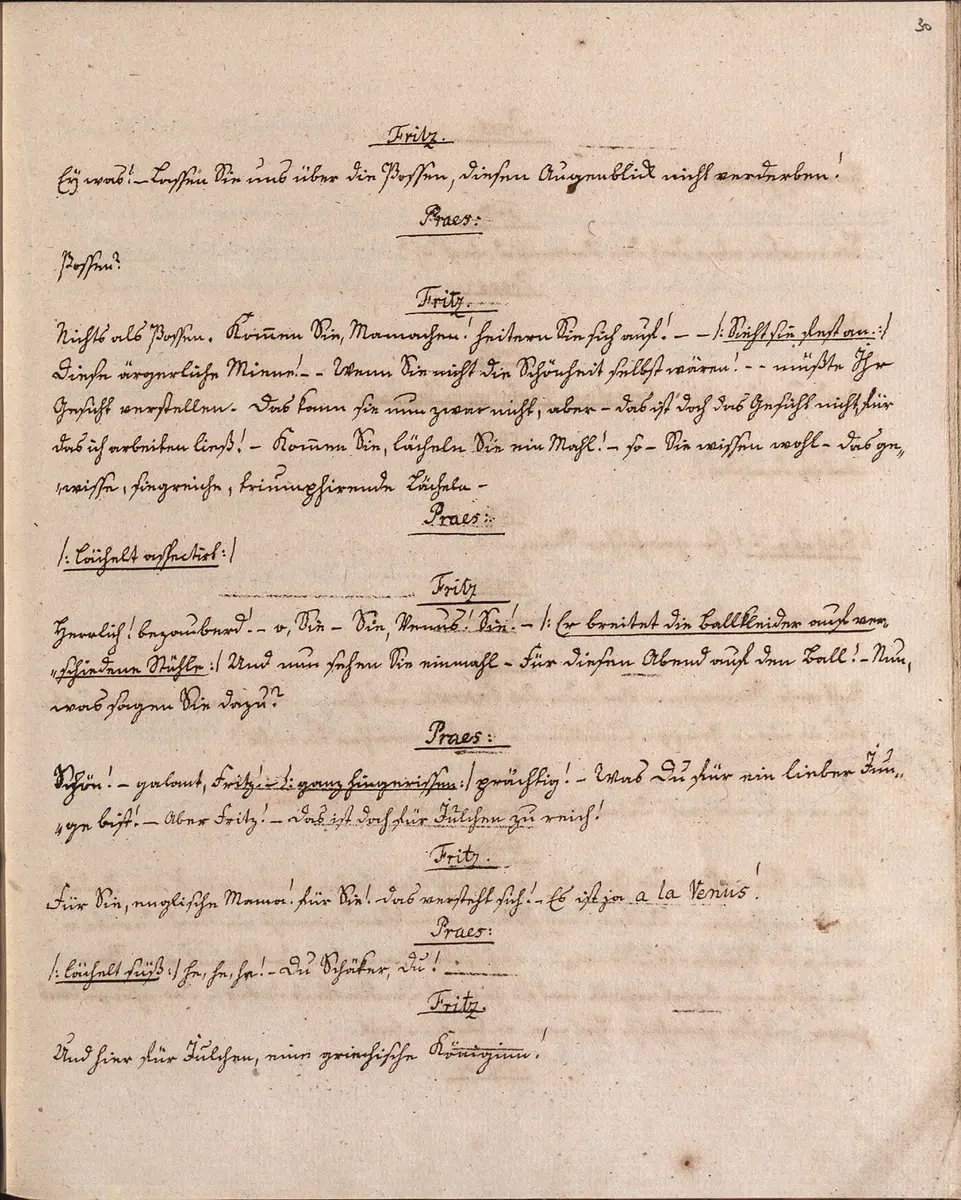 30
Fritz.
Ey was! – Lassen Sie uns über die Possen, diesen Augenblick nicht verderben!
Praes:
Possen?
Fritz.
Nichts als Possen. Kom̅en Sie, Mamachen! heitern Sie sich auf! – – /: Sieht sie fest an. :/
Diese ärgerliche Miene! – – Wenn Sie nicht die Schönheit selbst wären! – – müßte Ihr
Gesicht verstellen. Das kann sie nun zwar nicht, aber – das ist doch das Gesicht nicht, für
das ich arbeiten ließ! – Kom̅en Sie, lächeln Sie ein Mahl! – so – Sie wissen wohl – das ge„
„wisse, siegreiche, triumphirende Lächeln –
Praes:
/: Lächelt affectirt :/
Fritz
Herrlich! bezauberd! – o, Sie – Sie, Venus! Sie! – /: Er breitet die Ballkleider auf ver„
„schiedene Stühle :/ Und nun sehen Sie einmahl – Für diesen Abend auf den Ball! – Nun,
was sagen Sie dazu?
Praes:
Schön! – galant, Fritz! – /: ganz hingerissen :/ prächtig! – Was Du für ein lieber Jun„
„ge bist! – Aber Fritz! – das ist doch für Julchen zu reich!
Fritz.
Für Sie, englische Mama! für Sie! das versteht sich! – Es ist ja a la Venus!
Praes:
/: lächelt süß :/ he, he, he! – Du Schäker, du!
Fritz.
Und hier für Julchen, eine griechische Königinn!